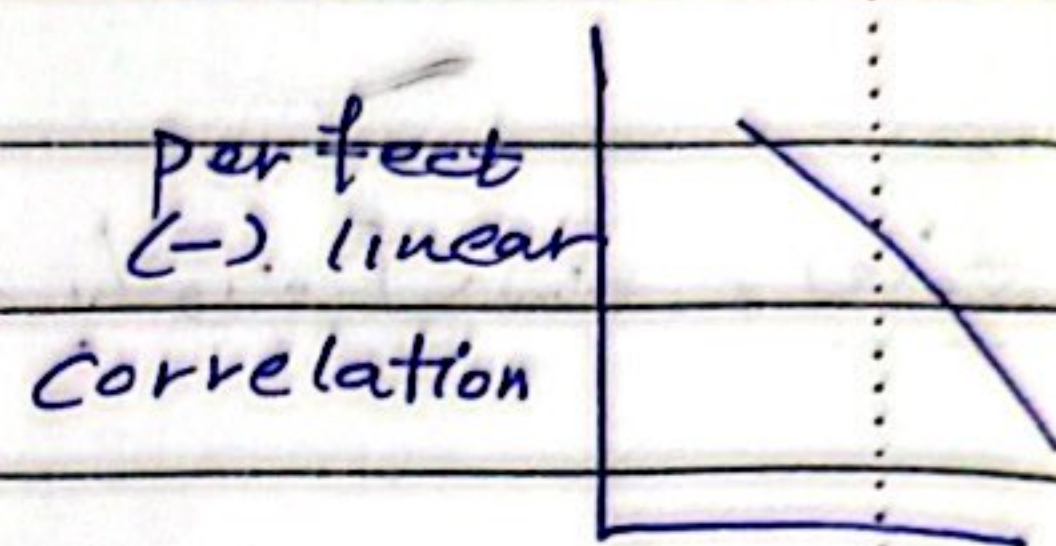 perfect
(-). linear
correlation